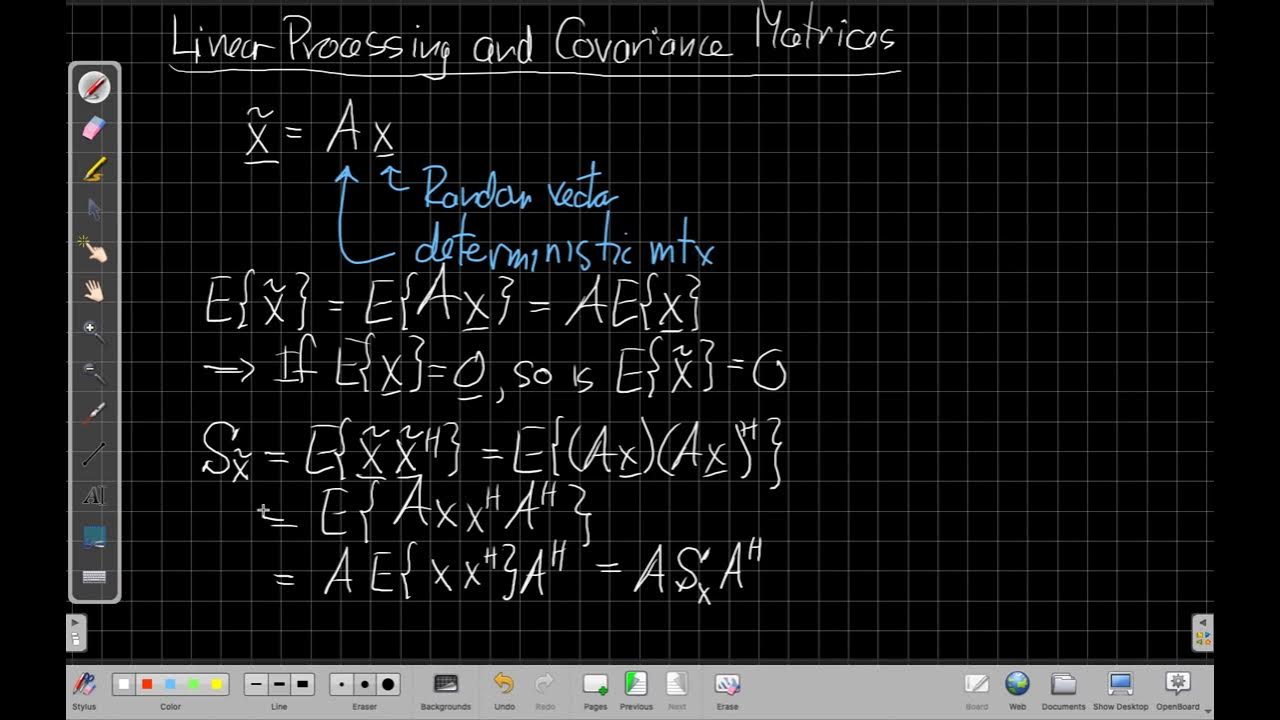 Linear Processing and Covariance Matrices
x̃ = A x
Random vector
deterministic mtx
E{x̃} = E{A x} = A E{x}
⇒ If E{x} = 0, so is E{x̃} = 0
S_x̃ = E{x̃ x̃^H} = E{(A x)(A x)^H}
= E{A x x^H A^H}
= A E{x x^H} A^H = A S_x A^H
Stylus
Color
Line
Eraser
Backgrounds
Undo
Redo
Pages
Previous
Next
Erase
Board
Web
Documents
Show Desktop
OpenBoard